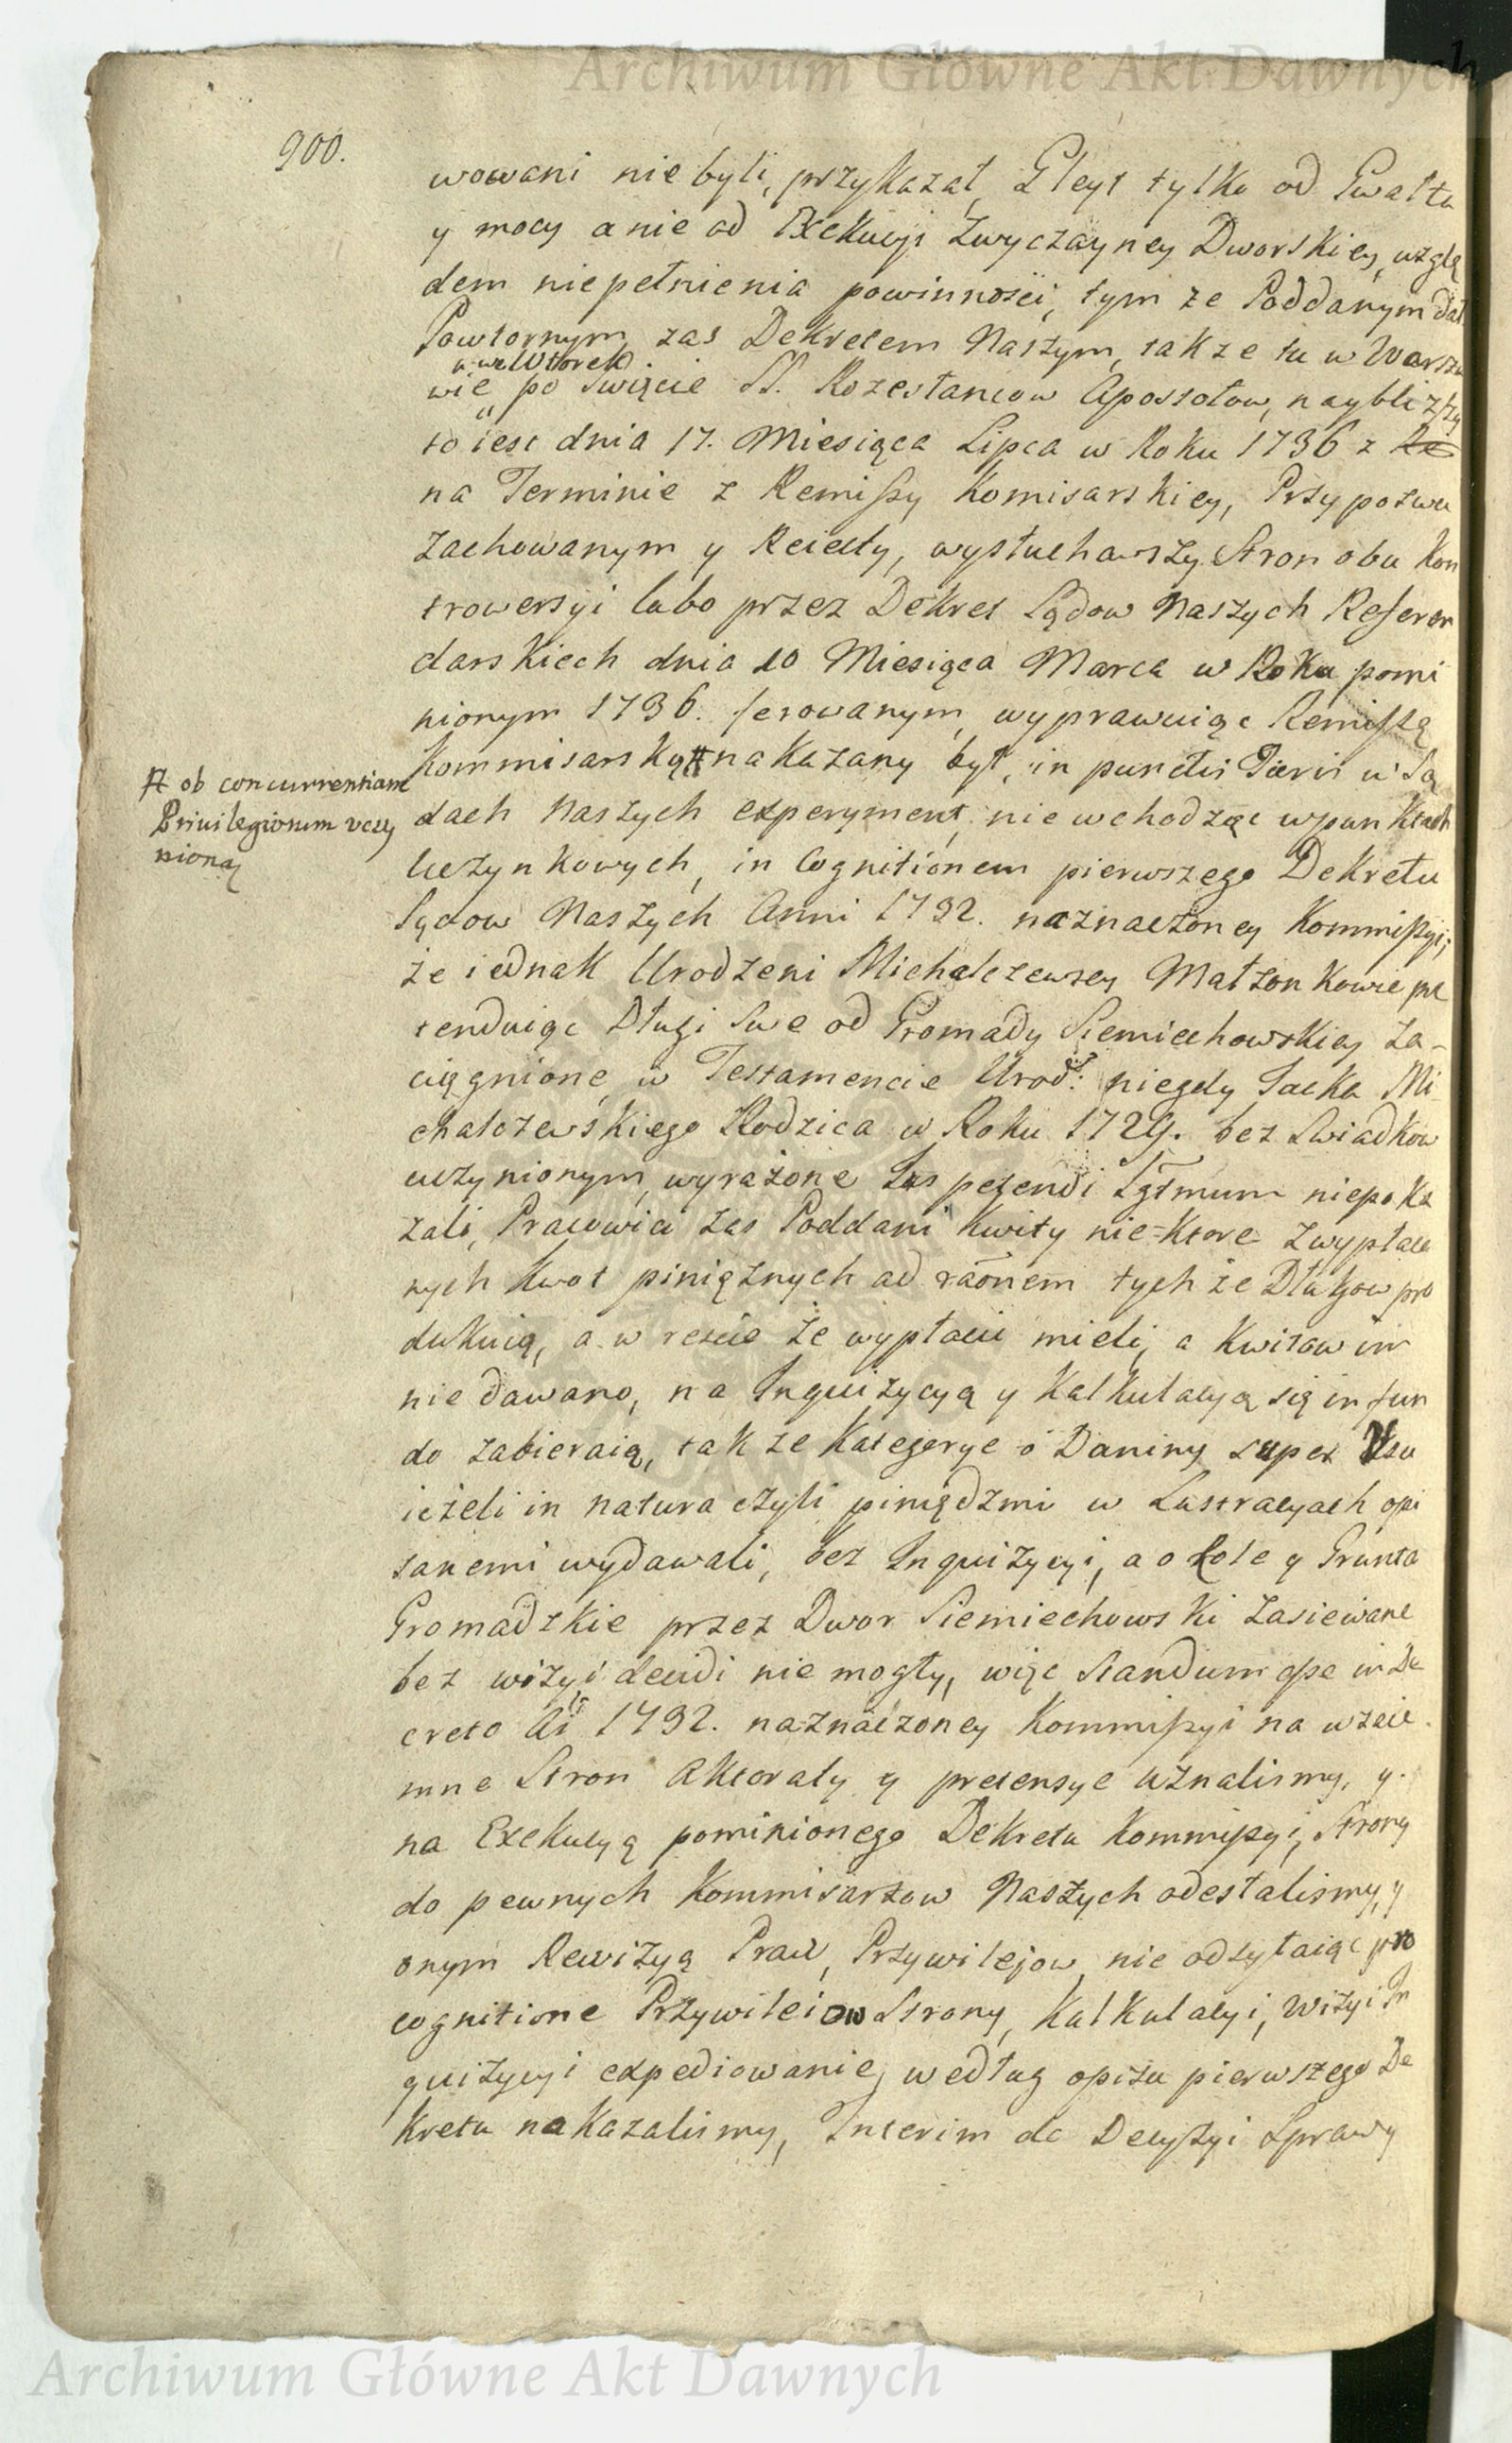 Archiwum Główne Akt Dawnych
900.
wowani nie byli, przykazał, Gleyt tylko od Gwałtu
y mocy a nie od Exekucyi Zwyczayney Dworskiey, wzglę
dem niepełnienia powinności, tym ze Poddanym dał
Powtornym zas Dekretem Naszym, takze tu w Warsza
a we Wtorek
wie po Swięcie SS. Rozesłancow Apostołow, nayblizszy
to iest dnia 17. Miesiąca Lipca w Roku 1736 z
na Terminie z Remissy Komisarskiey, Przypozwu
Zachowanym y Reiecty, wysłuchawszy Stron obu Kon
trowersyi lubo przez Dekret Sądow Naszych Referen
darskiech dnia 10 Miesiąca Marca w Roku pomi
nionym 1736. ferowanym, wyprawuiąc Remissą
Kommisarską # nakazany był, in punctis Juris w Są
# ob concurrentiam
Privilegiorum uczy
nioną
dach Naszych experyment, nie wchodząc w punktach
Uczynkowych, in Cognitionem pierwszego Dekretu
Sądow Naszych Anni 1732. naznaczoney Kommissyi,
że iednak Urodzeni Michalczewscy Małzonkowie pre
tenduiąc Długi Swe od Gromady Siemiechowskiey Za-
ciągnione, w Testamencie Urod: niegdy Jacka Mi
chalczewskiego Rodzica w Roku 1729. bez Swiadkow
uczynionym, wyrażone Jus petendi Lgtmum niepoka
zali, Pracowici zas Poddani Kwity nie=które z wypłaco
nych Kwot piniężnych ad raonem tychże Długow pro
dukuią, a w reście że wypłacić mieli, a Kwitow im
nie dawano, na Inquizycyą y Kalkulacyą się in fun
do zabieraią, takze Kategorye o Daniny super Usu
ieżeli in natura czyli piniędzmi w Lustracyach opi
sanemi wydawali, bez Inquizycyi, a o Role y Grunta
Gromadzkie przez Dwor Siemiechowski Zasiewane
bez wizyi decidi nie mogły, więc Standum ope in De
creto Ai 1732. naznaczoney Kommissyi na wzaie
mne Stron Aktoraty y pretensye uznalismy, y
na Exekucyą pominionego Dekretu Kommissyi, Strony
do pewnych Kommisarzow Naszych odesłalismy, y
onym Rewizyą Praw, Przywilejow, nie odsyłaiąc pro
cognitione Przywileiow Strony, Kalkulacyi, Wizyi In
quizycyi expediowanie, według opisu pierwszego De
kretu nakazalismy, Interim do Decyzyi Sprawy
Archiwum Główne Akt Dawnych